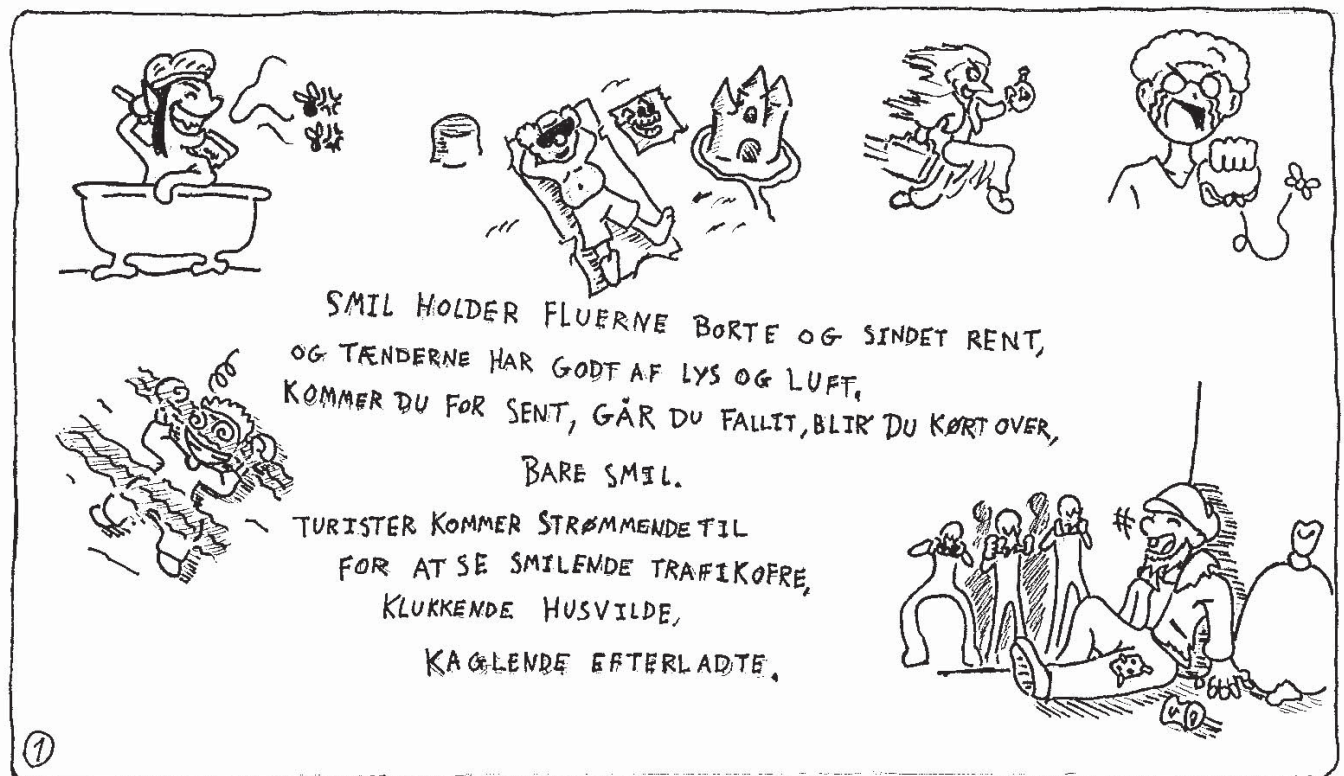 SMIL HOLDER FLUERNE BORTE OG SINDET RENT,
OG TÆNDERNE HAR GODT AF LYS OG LUFT.
KOMMER DU FOR SENT, GÅR DU FALLIT, BLIR' DU KØRT OVER,
BARE SMIL.
TURISTER KOMMER STRØMMENDE TIL
FOR AT SE SMILENDE TRAFIKOFRE,
KLUKKENDE HUSVILDE,
KAGLENDE EFTERLADTE.
1